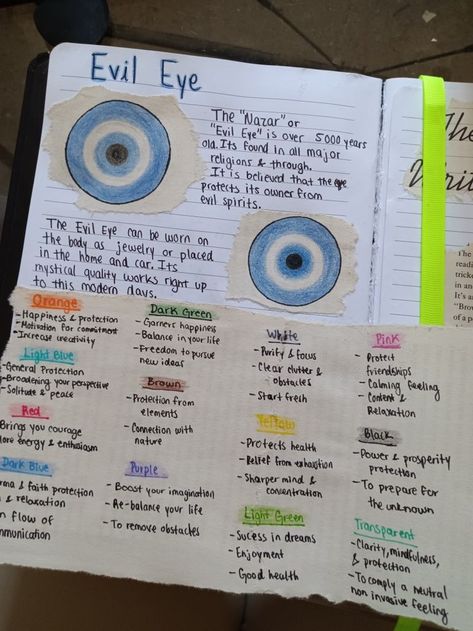 Evil Eye
The "Nazar" or
"Evil Eye" is over 5000 years
old. Its found in all major
religions & through.
It is believed that the eye
protects its owner from
evil spirits.
The Evil Eye can be worn on
the body as jewelry or placed
in the home and car. Its
mystical quality works right up
to this modern days.
Orange
- Happiness & protection
- Motivation for commitment
- Increase creativity
Light Blue
- General Protection
- Broadening your perspective
- Solitude & peace
Red
Brings you courage
more energy & enthusiasm
Dark Blue
& faith protection
& relaxation
flow of
Dark Green
- Garners happiness
- Balance in your life
- Freedom to pursue
new ideas
Brown
- Protection from
elements
- Connection with
nature
Purple
- Boost your imagination
- Re-balance your life
- To remove obstacles
White
- Purify & focus
- Clear clutter &
obstacles
- Start fresh
Yellow
- Protects health
- Relief from exhaustion
- Sharper mind &
concentration
Light Green
- Sucess in dreams
- Enjoyment
- Good health
Pink
- Protect
friendships
- Calming feeling
- Content &
Relaxation
Black
- Power & prosperity
protection
- To prepare for
the unknown
Transparent
- Clarity, mindfulness,
& protection
- To comply a neutral
non invasive feeling
The